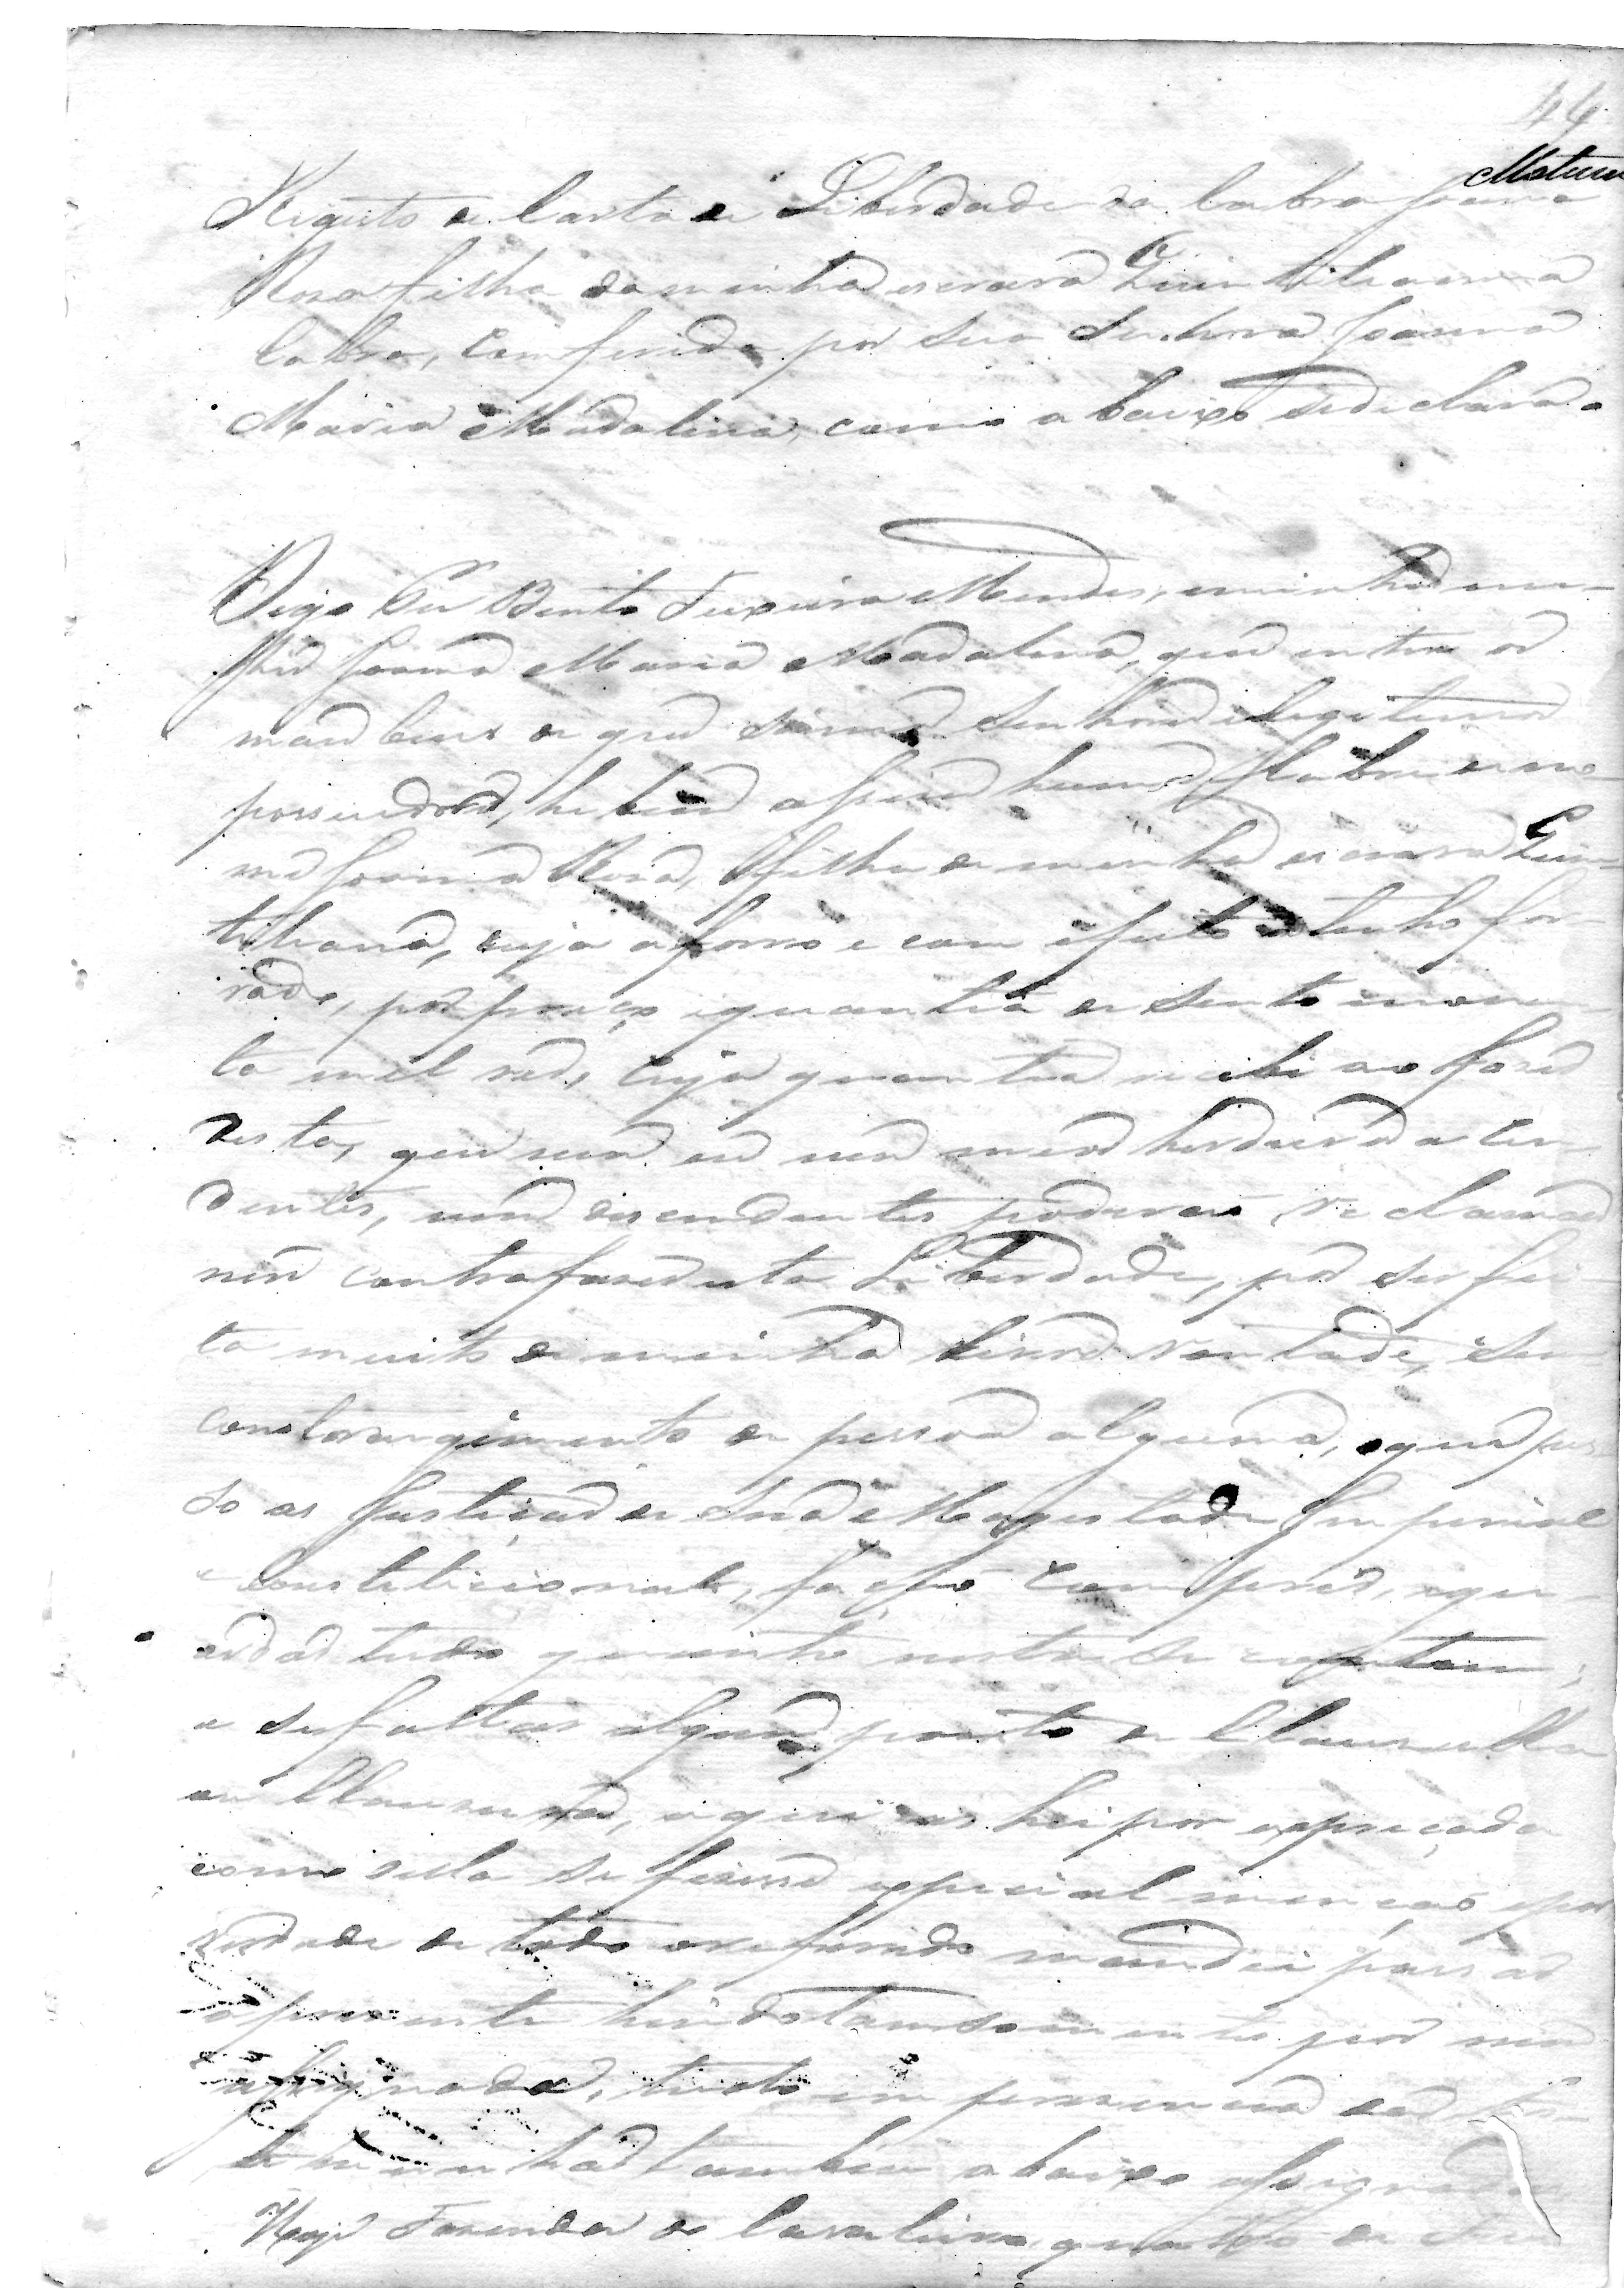 44
Registo de Carta de Liberdade da Cabra Joanna
Rosa filha da minha escrava Quintilianna
Cabra, Comferida por Sua Senhora Joanna
Maria Madalena, como abaixo sedeclara.
Digo Eu Bento Teixeira Mendes, eminha mu-
lher Joanna Maria Madalena, que entre os
mais bens de que somos Senhores elegitimos
possuidores, he bem assim huma Cabra de no-
me Joanna Rosa, filha de minha escrava Quin-
tiliana, cuja aforro e com efeito tenho for-
rado, por preço e quantia de Sento enoven-
ta mil reis, Cuja quantia recebi ao fazer
desta, que nem eu nem meus herdeiros a cen-
dentes, nem desendentes poderão reclamar
nem contrafazer esta Liberdade, por ser fei-
ta muito de minha livre vontade, e Sem
constrangimento de pessoa alguma, e que pes-
so as Justiças de Sua Magestade Imperial
e Constitucional, fação Comprir, e gu-
ardar tudo quanto nesta se contem,
e se faltar algum ponto ou Clausulla
ou Clausullas, aqui as hei por expreçada
como se della se fizesse expecial menção e por
verdade de todo o referido mandei passar
a prezente hindo tamsomente por mim
assignada, tudo em prezença das tes-
temunhas tambem abaixo assignadas
Hoje Fazenda de quatro de